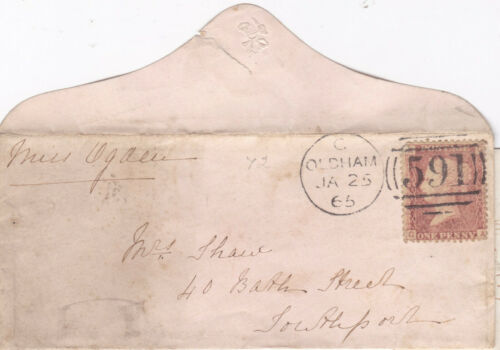 Miss Ogden
C
OLDHAM
JA 25
65
591
ONE PENNY
Mrs Shaw
40 Bath Street
Southport